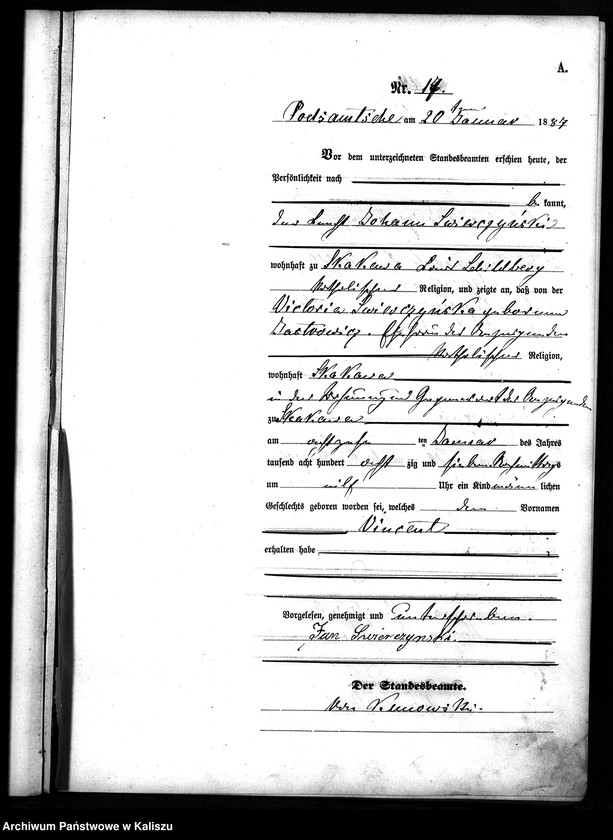 A.
Nr. 17.
Podsamtsche am 20 ten Januar 1887
Vor dem unterzeichneten Standesbeamten erschien heute, der
Persönlichkeit nach
be kannt,
der Johann Swierczyński
wohnhaft zu Skakawa Kreis Schildberg
katholischer Religion, und zeigte an, daß von der
Victoria Swierczyńska geborenen
Ehefrau des Anzeigenden
katholischer Religion,
wohnhaft Skakawa
in der Wohnung in Gegenwart des Anzeigenden
zu Skakawa
am achtzehn ten Januar des Jahres
tausend acht hundert acht zig und sieben Vormittags
um eilf Uhr ein Kind männ lichen
Geschlechts geboren worden sei, welches den Vornamen
Vincent
erhalten habe
Vorgelesen, genehmigt und unterschrieben.
Jan Swierczynski.
Der Standesbeamte.
Archiwum Państwowe w Kaliszu